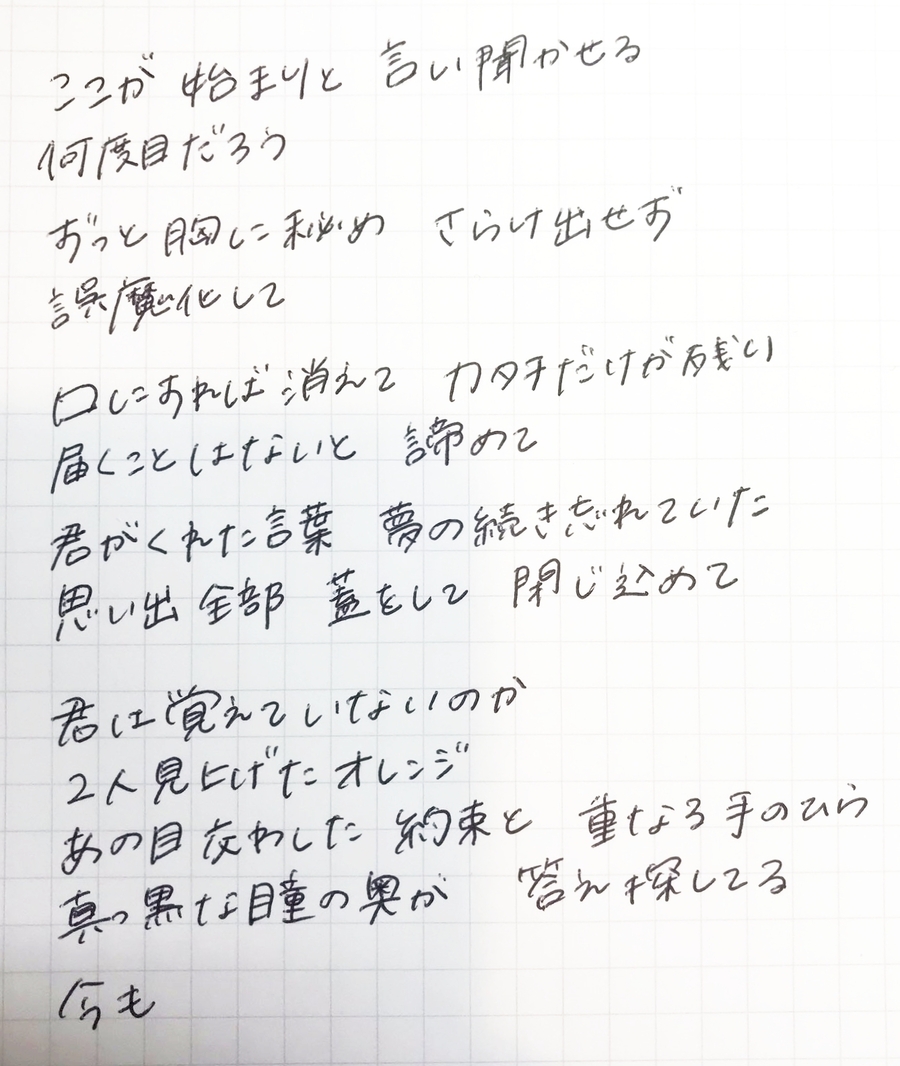 ここが 始まりと 言い聞かせる
何度目だろう
ずっと胸に秘め さらけ出せず
誤魔化して
口にすれば消えて カタチだけが残り
届くことはないと 諦めて
君がくれた言葉 夢の続き忘れていた
思い出 全部 蓋をして 閉じ込めて
君は覚えていないのか
2人見上げたオレンジ
あの目交わした約束と 重なる手のひら
真っ黒な瞳の奥が 答え探してる
今も